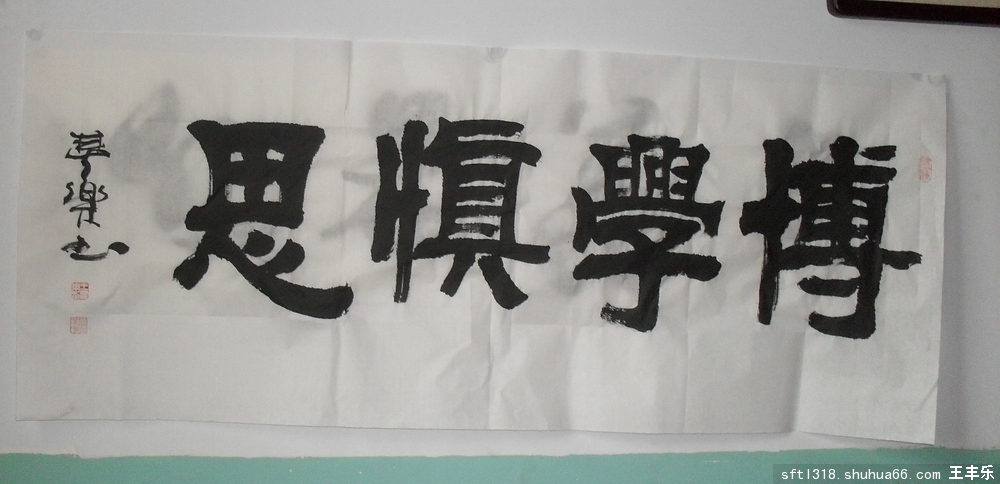 博學慎思
樂书
sftl318.shuhua66.com 王丰乐